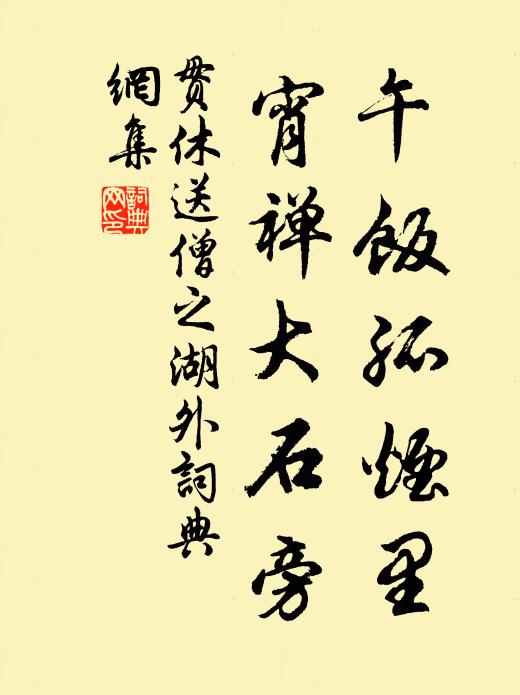 午飯孤煙里
宵禅大石旁
贯休送僧之湖外詞典
網集
詞典網印